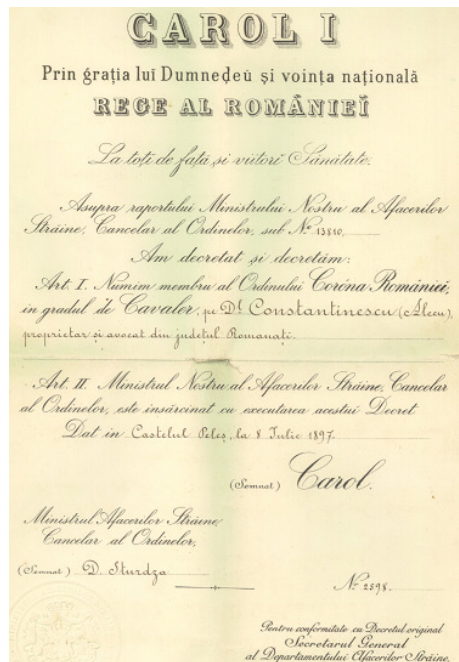 CAROL I
Prin grația luĭ Dumneḑeŭ și voința națională
REGE AL ROMÂNIEĬ
La toți de față și viitorĭ Sănătate.
Asupra raportului Ministrului Nostru al Afacerilor
Străine, Cancelar al Ordinelor, sub No 13810,
Am decretat și decretăm:
Art. I. Numim membru al Ordinului Coróna Românieĭ,
in gradul de Cavaler, pe Dl Constantinescu (Alecu),
proprietar și avocat din județul Romanați.
Art. II. Ministrul Nostru al Afacerilor Străine, Cancelar
al Ordinelor, este insărcinat cu executarea acestui Decret
Dat in Castelul Peleș, la 8 Iulie 1897.
(Semnat) Carol.
Ministrul Afacerilor Străine,
Cancelar al Ordinelor,
(Semnat) D. Sturdza
No 2598.
Pentru conformitate cu Decretul original
Secretarul General
al Departamentului Afacerilor Străine,